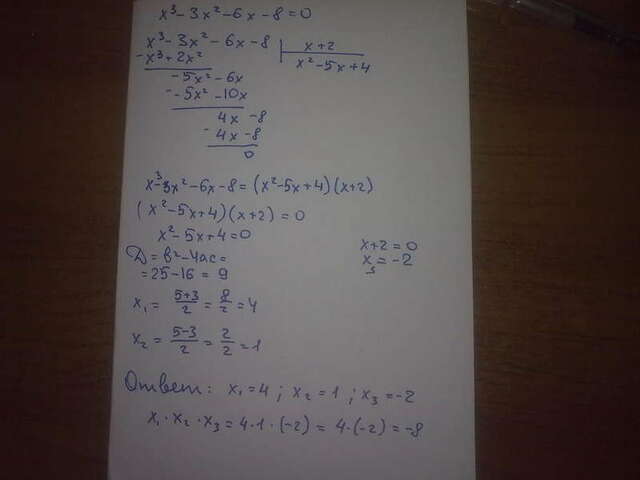 x³-3x²-6x-8=0
x³-3x²-6x-8 | x+2
-x³+2x² x²-5x+4
-5x²-6x
--5x²-10x
4x-8
-4x-8
0
x³-3x²-6x-8=(x²-5x+4)(x+2)
(x²-5x+4)(x+2)=0
x²-5x+4=0 x+2=0
D=b²-4ac= x₃=-2
=25-16=9
x₁=(5+3)/2=8/2=4
x₂=(5-3)/2=2/2=1
Ответ: x₁=4; x₂=1; x₃=-2
x₁·x₂·x₃=4·1·(-2)=4·(-2)=-8